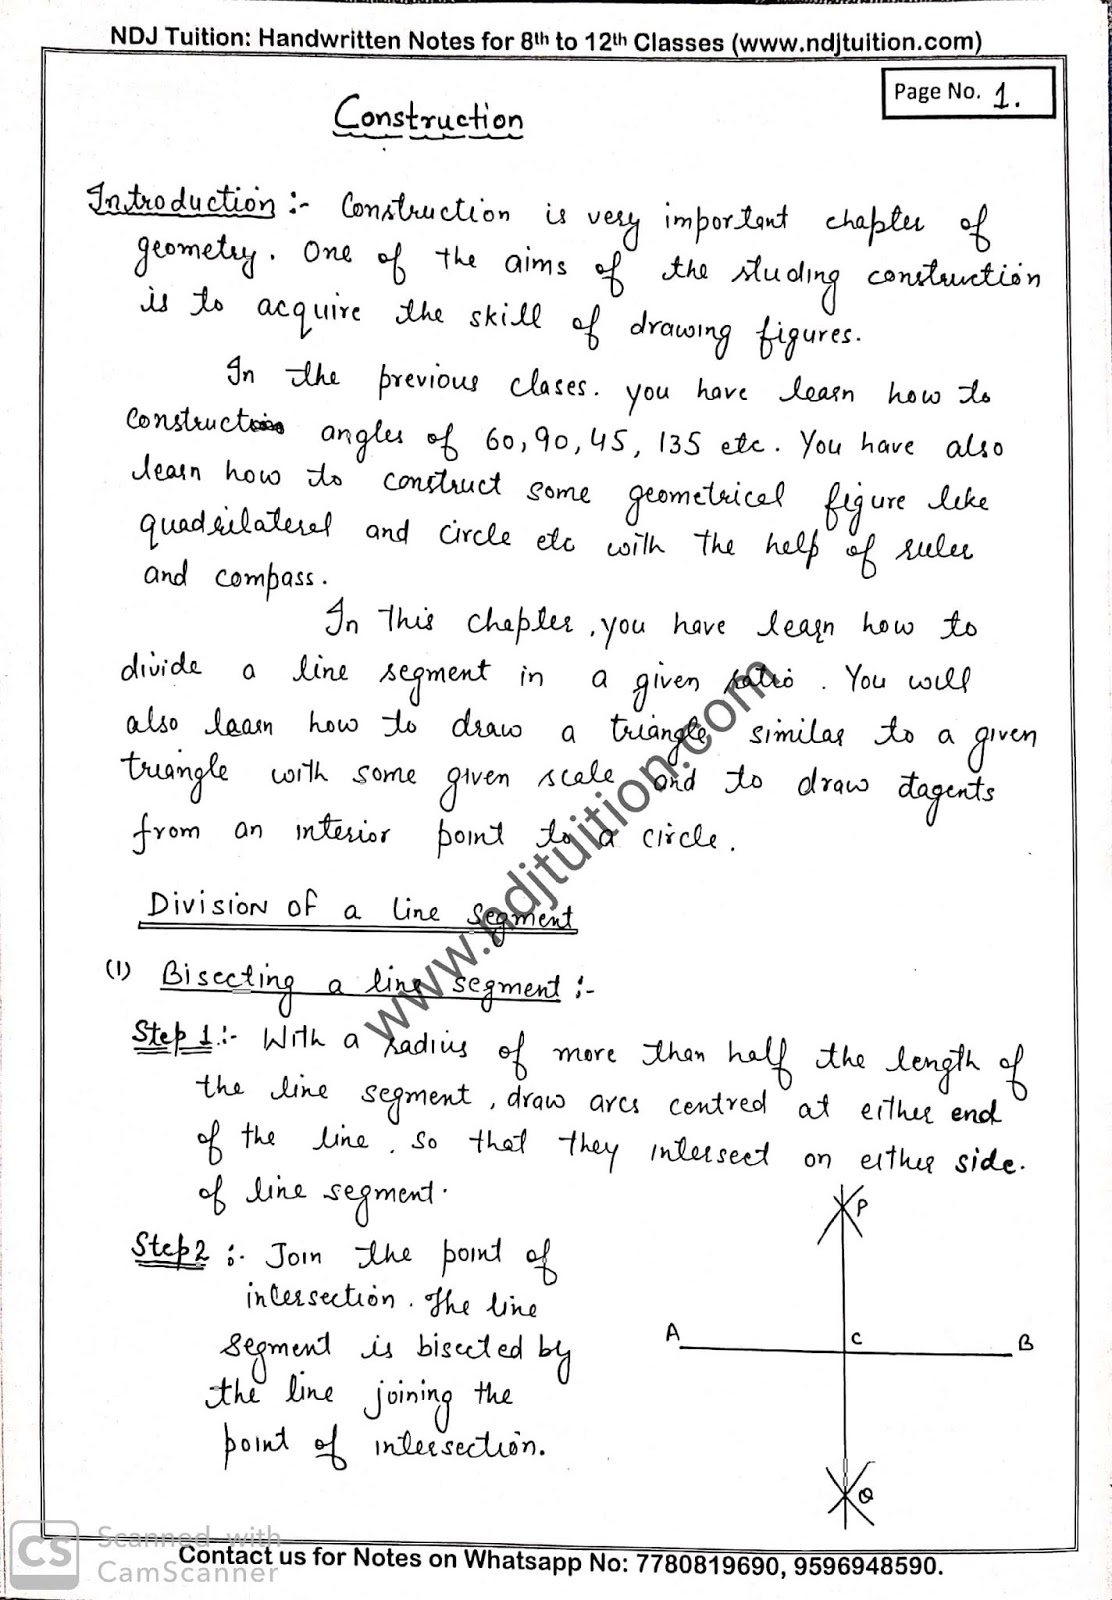 NDJ Tuition: Handwritten Notes for 8th to 12th Classes (www.ndjtuition.com)
Page No. 1.
Construction
Introduction :- Construction is very important chapter of
geometry. One of the aims of the studing construction
is to acquire the skill of drawing figures.
In the previous clases. you have learn how to
construct angles of 60, 90, 45, 135 etc. You have also
learn how to construct some geometrical figure like
quadrilateral and circle etc with the help of ruler
and compass.
In this chapter, you have learn how to
divide a line segment in a given ratio. You will
also laarn how to draw a triangle similar to a given
triangle with some given scale and to draw tagents
from an interior point to a circle.
www.ndjtuition.com
Division of a line segment
(1) Bisecting a line segment :-
Step 1 :- With a radius of more than half the length of
the line segment, draw arcs centred at either end
of the line. so that they intersect on either side.
of line segment.
Step 2 :- Join the point of
intersection. The line
segment is bisected by
the line joining the
point of intersection.
P
A C B
Q
CS Scanned with
CamScanner
Contact us for Notes on Whatsapp No: 7780819690, 9596948590.